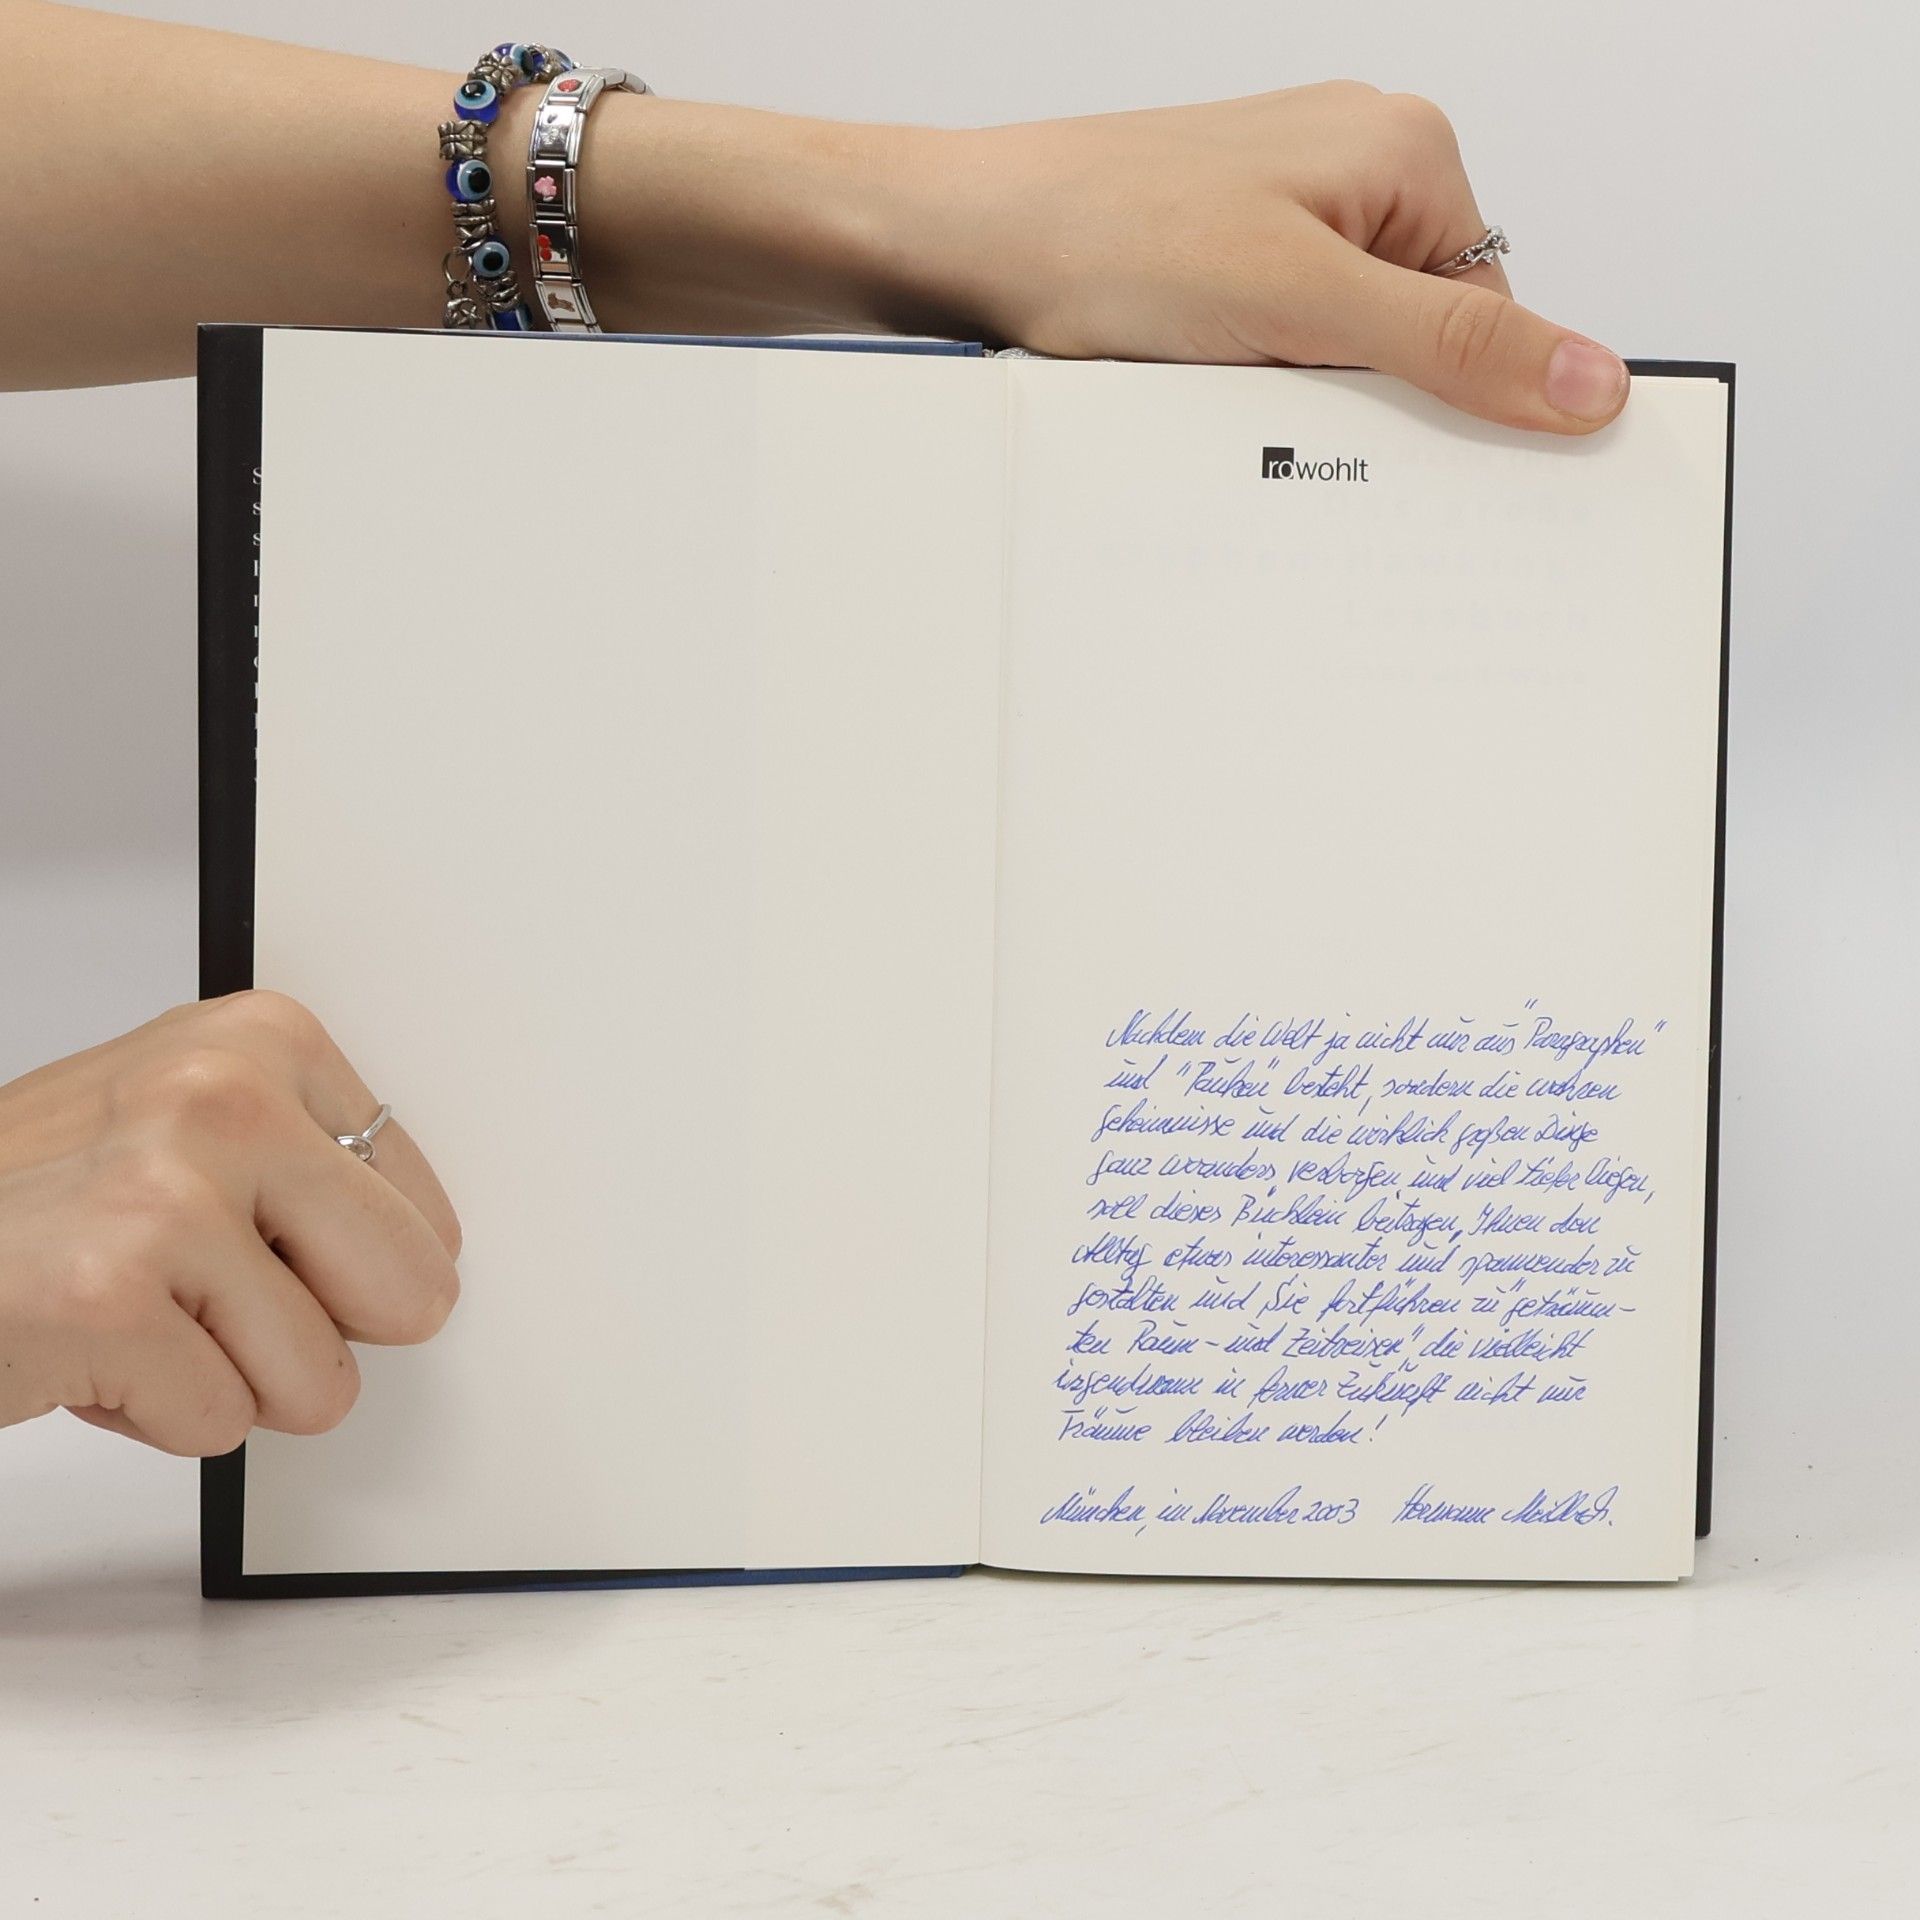 rowohlt
Nachdem die Welt ja nicht nur aus "Paragraphen"
und "Pauken" besteht, sondern die wahren
Geheimnisse und die wirklich großen Dinge
ganz woanders verborgen und viel tiefer liegen,
soll dieses Büchlein beitragen, Ihnen den
Alltag etwas interessanter und spannender zu
gestalten und Sie fortführen zu "geträum-
ten Raum- und Zeitreisen", die vielleicht
irgendwann in ferner Zukunft nicht nur
Träume bleiben werden!
München, im November 2003 Hermann